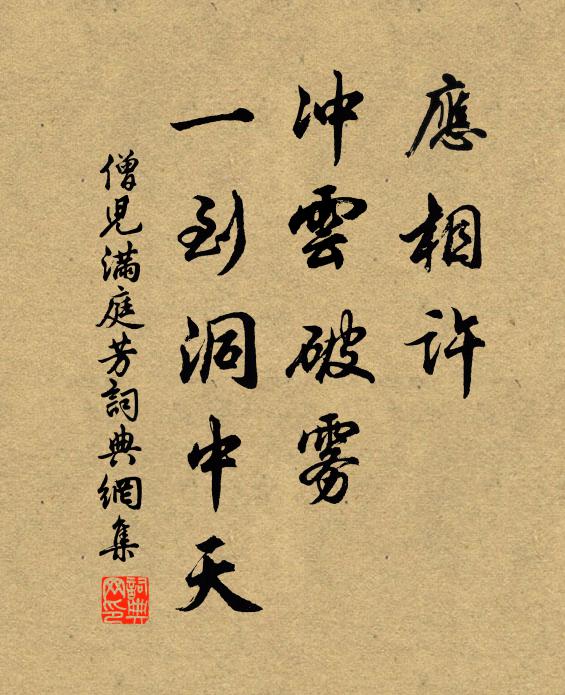 應相許
冲雲破雾
一到洞中天
僧兒滿庭芳詞典網集
詞典网印